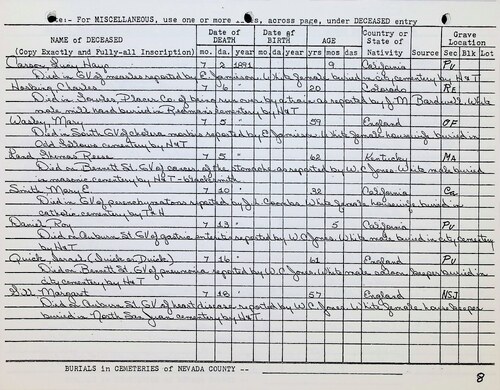 Note:- For MISCELLANEOUS, use one or more lines, across page, under DECEASED entry
NAME OF DECEASED
(Copy Exactly and Fully-all Inscription)
Date of DEATH
mo. da. year
Date of BIRTH
mo. da. year
AGE
yrs mos das
Country or State of Nativity
Source
Grave Location
Sec Blk Lot
Carson, Hays 7 2 1891 9 California PU
Died in GV of measles reported by E. Jamieson. White female buried in city cemetery by H&T
Hosking, Charles 7 6 " 20 Colorado RE
Died in Towles, Placer Co. of being run over by a train as reported by J.M. Bardwell. White male, mill hand buried in cemetery by H&T
Wasley, Mary 7 5 " 59 England OF
Died in South GV of cholera morbus reported by E. Jamieson. White female housewife buried in
Odd Fellows cemetery by H&T
Kard, Thomas Reese 7 5 " 62 Kentucky MA
Died on Bennett St. GV of cancer of the stomach as reported by W.C. Jones. White male buried
in masonic cemetery by H&T - blacksmith
Smith, Mary E. 7 10 " 32 California Ca
Died in GV of reported by J.L. Coombs White female housewife buried in
catholic cemetery by T&H
Daniel, Roy 7 13 " 5 California PU
Died on Auburn St. GV of gastric enteritis reported by W.C. Jones. White male buried in city cemetery
by H&T
Quick, Israel (Quick or Duick) 7 16 " 61 England PU
Died on Bennett St. GV of pneumonia reported by W.C. Jones. White male saloon keeper buried in
city cemetery by H&T
Gill, Margart 7 18 " 57 England NSJ
Died S. Auburn St. GV of heart disease reported by W.C. Jones. White female, housekeeper
buried in North San Juan cemetery by H&T.
BURIALS in CEMETERIES of NEVADA COUNTY --
8